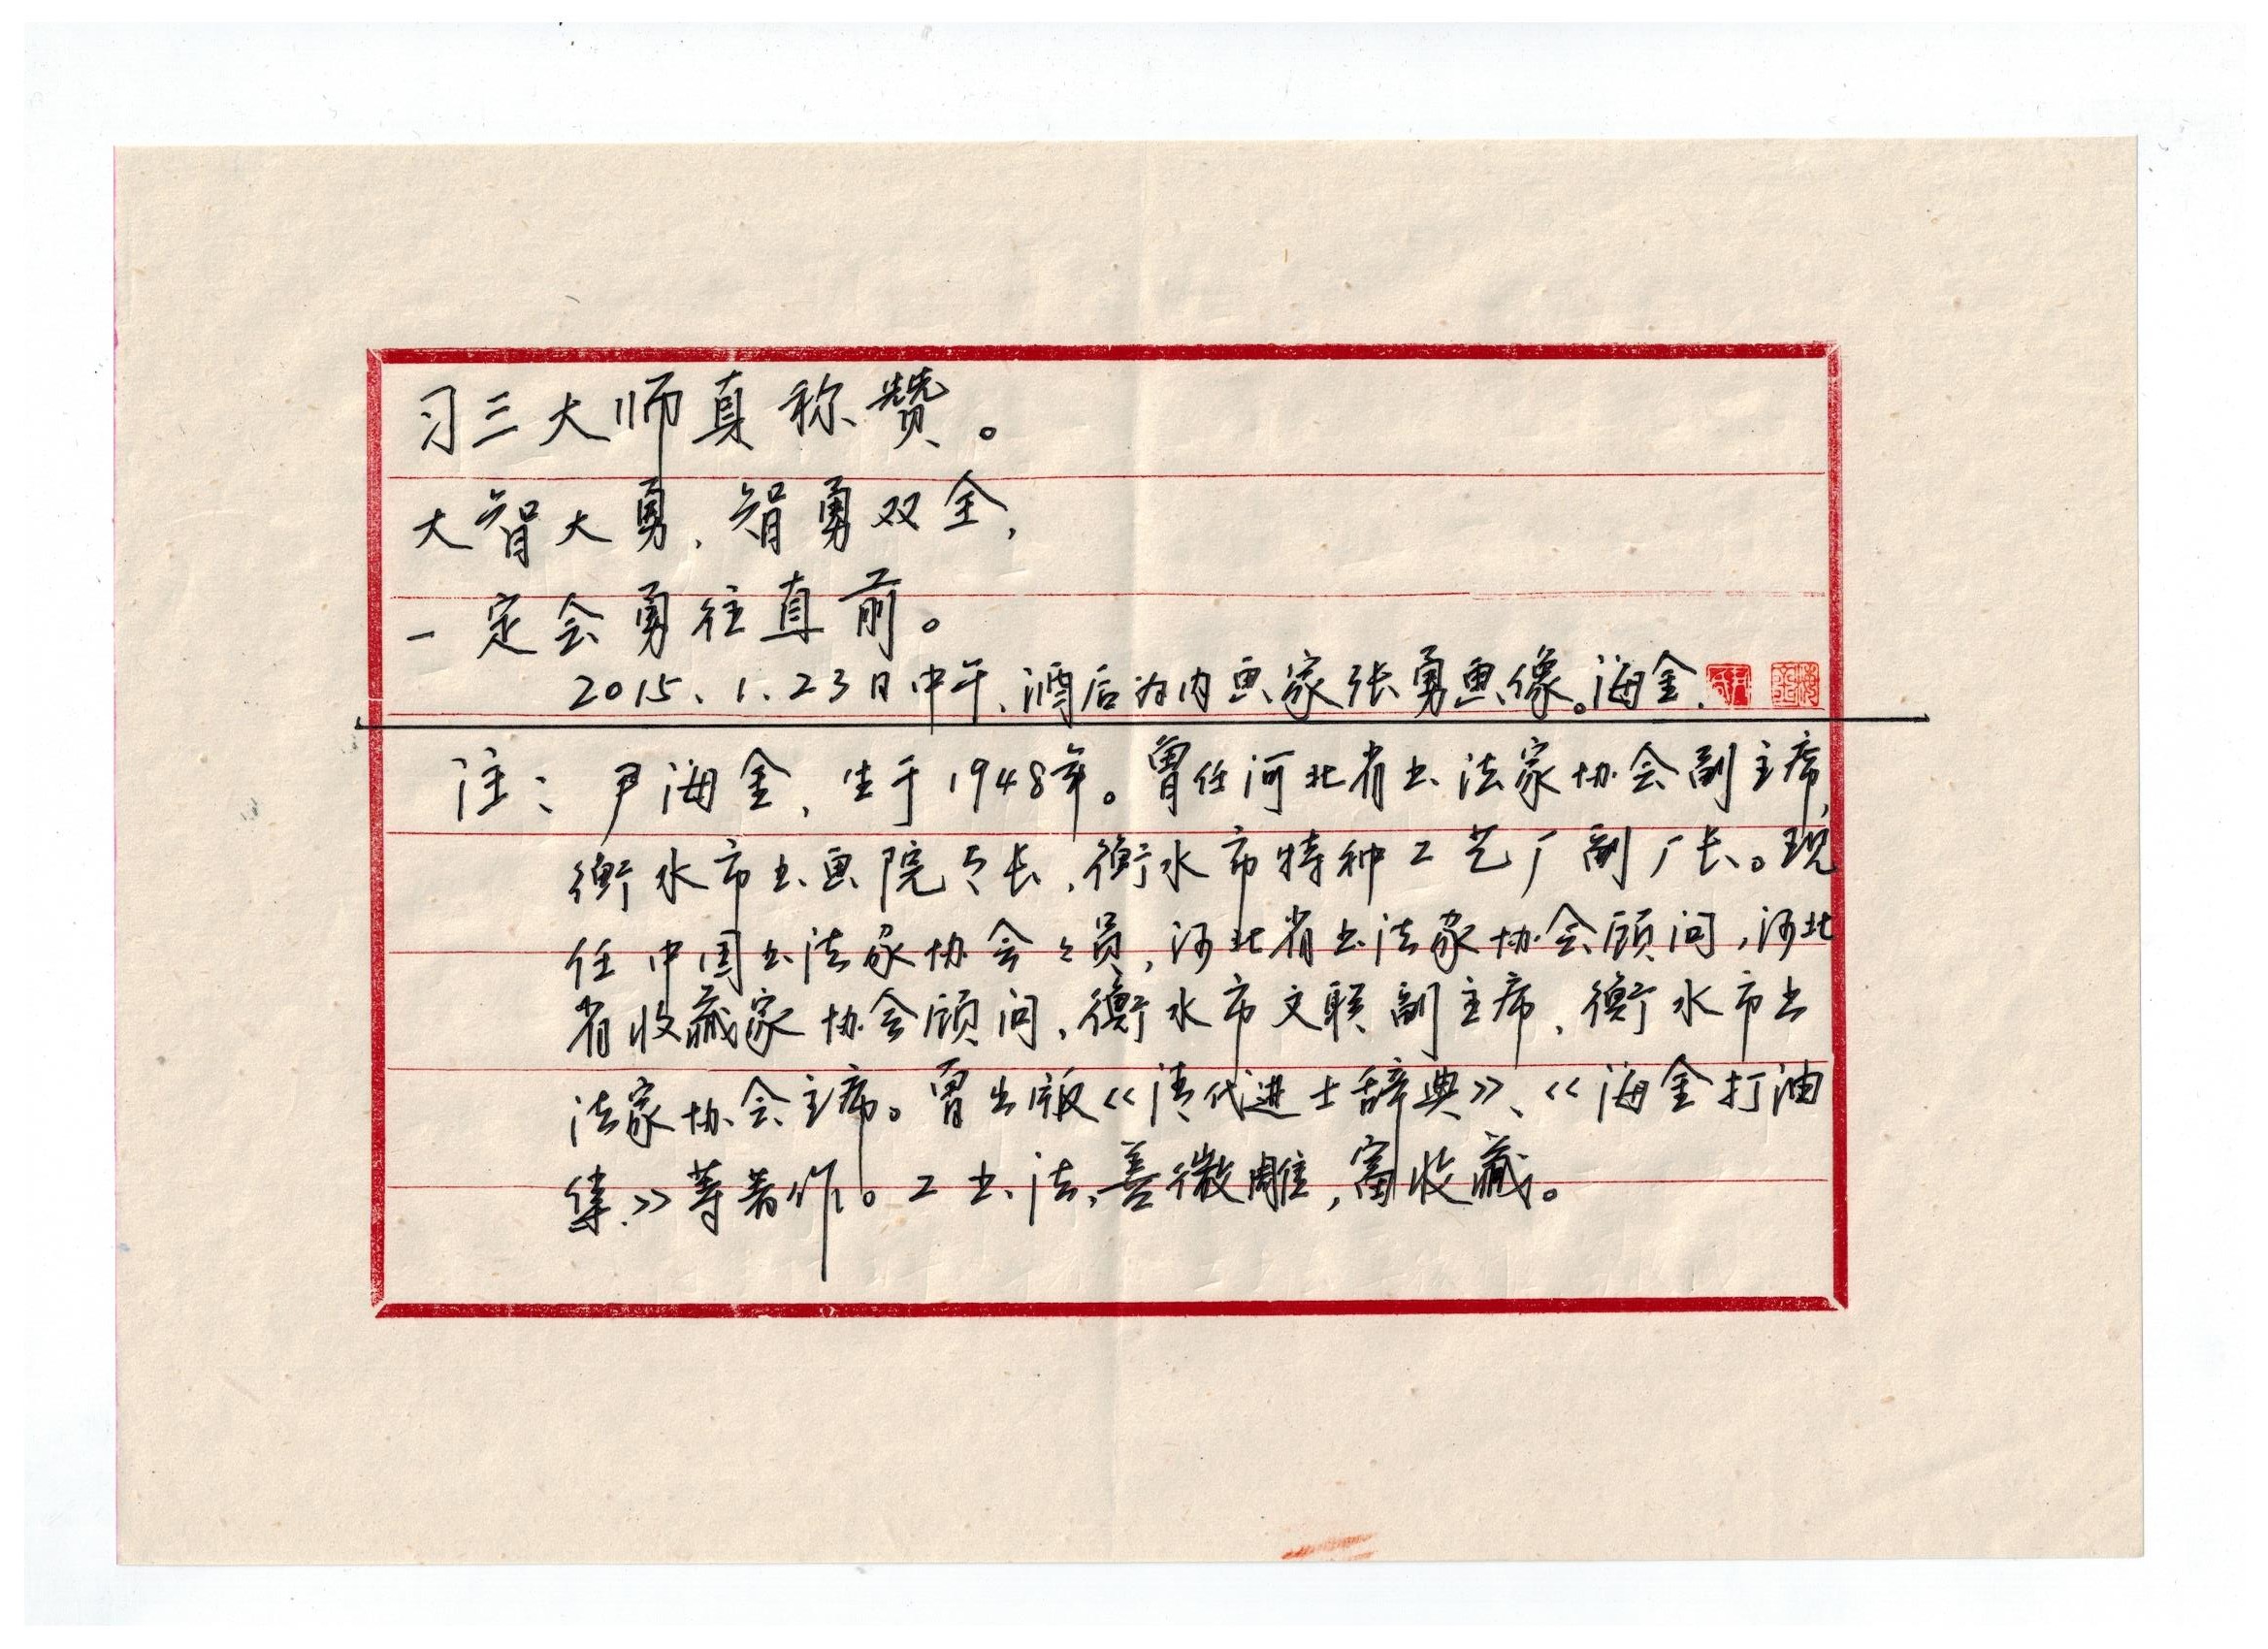 习三大师真称赞。
大智大勇，智勇双全，
一定会勇往直前。
2015、1、23日中午、酒后为内画家张勇画像。海金、
注：尹海金，生于1948年。曾任河北省书法家协会副主席，
衡水市书画院之长，衡水市特种工艺厂副厂长。现
任中国书法家协会会员，河北省书法家协会顾问，河北
省收藏家协会顾问，衡水市文联副主席，衡水市书
法家协会主席。曾出版《清代进士辞典》、《海金打油
集》等著作。工书法，善微雕，富收藏。